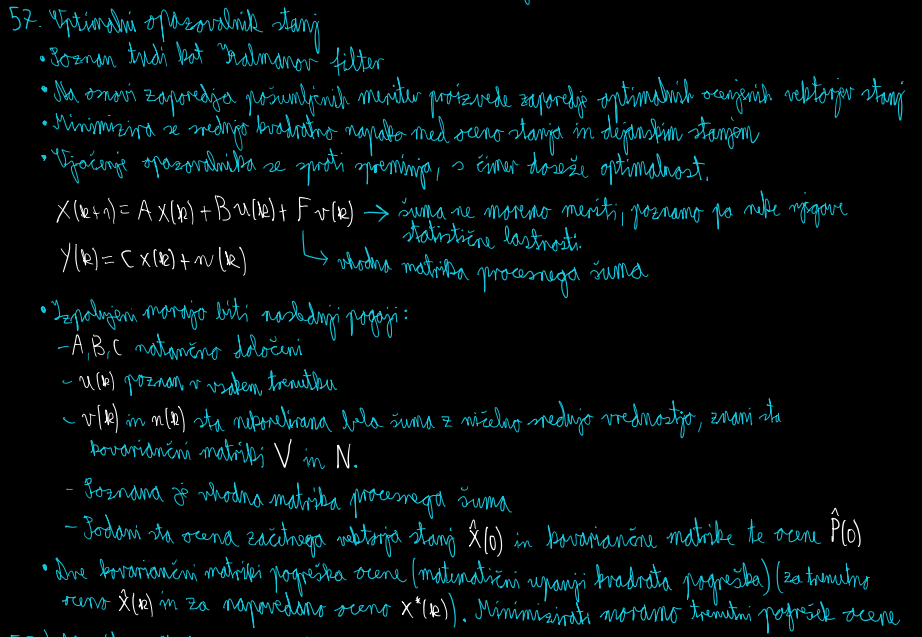 57. Optimalni opazovalnik stanj
• Poznan tudi kot Kalmanov filter
• Na osnovi zaporedja pošumljenih meritev proizvede zaporedje optimalnih ocenjenih vektorjev stanj
• Minimizira se srednjo kvadratno napako med oceno stanja in dejanskim stanjem
• Ojačenje opazovalnika se sproti spreminja, s čimer doseže optimalnost.
X(k+1) = A X(k) + B u(k) + F v(k) → šuma ne moremo meriti, poznamo pa neke njegove
statistične lastnosti.
Y(k) = C X(k) + n(k) ↳ vhodna matrika procesnega šuma
• Izpolnjeni morajo biti naslednji pogoji:
- A, B, C natančno določeni
- u(k) poznan v vsakem trenutku
- v(k) in n(k) sta nekorelirana bela šuma z ničelno srednjo vrednostjo, znani sta
kovariančni matriki V in N.
- Poznana je vhodna matrika procesnega šuma
- Podani sta ocena začetnega vektorja stanj X̂(0) in kovariančne matrike te ocene P̂(0)
• Dve kovariančni matriki pogreška ocene (matematični upanji kvadrata pogreška) (za trenutno
oceno X̂(k) in za napovedano oceno X*(k)). Minimizirati moramo trenutni pogrešek ocene